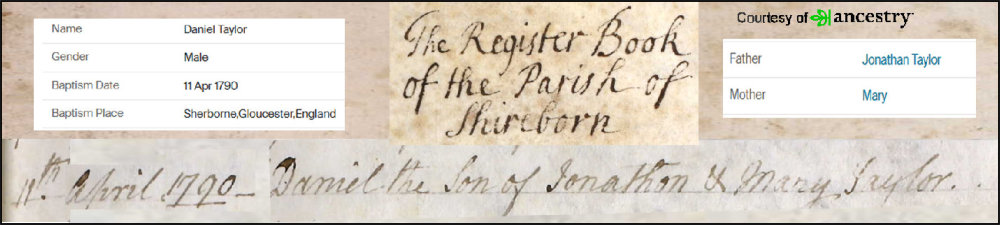 Name Daniel Taylor
Gender Male
Baptism Date 11 Apr 1790
Baptism Place Sherborne,Gloucester,England
The Register Book
of the Parish of
Shireborn
Courtesy of ancestry
Father Jonathan Taylor
Mother Mary
11th. April 1790 – Daniel the Son of Jonathon & Mary Taylor.